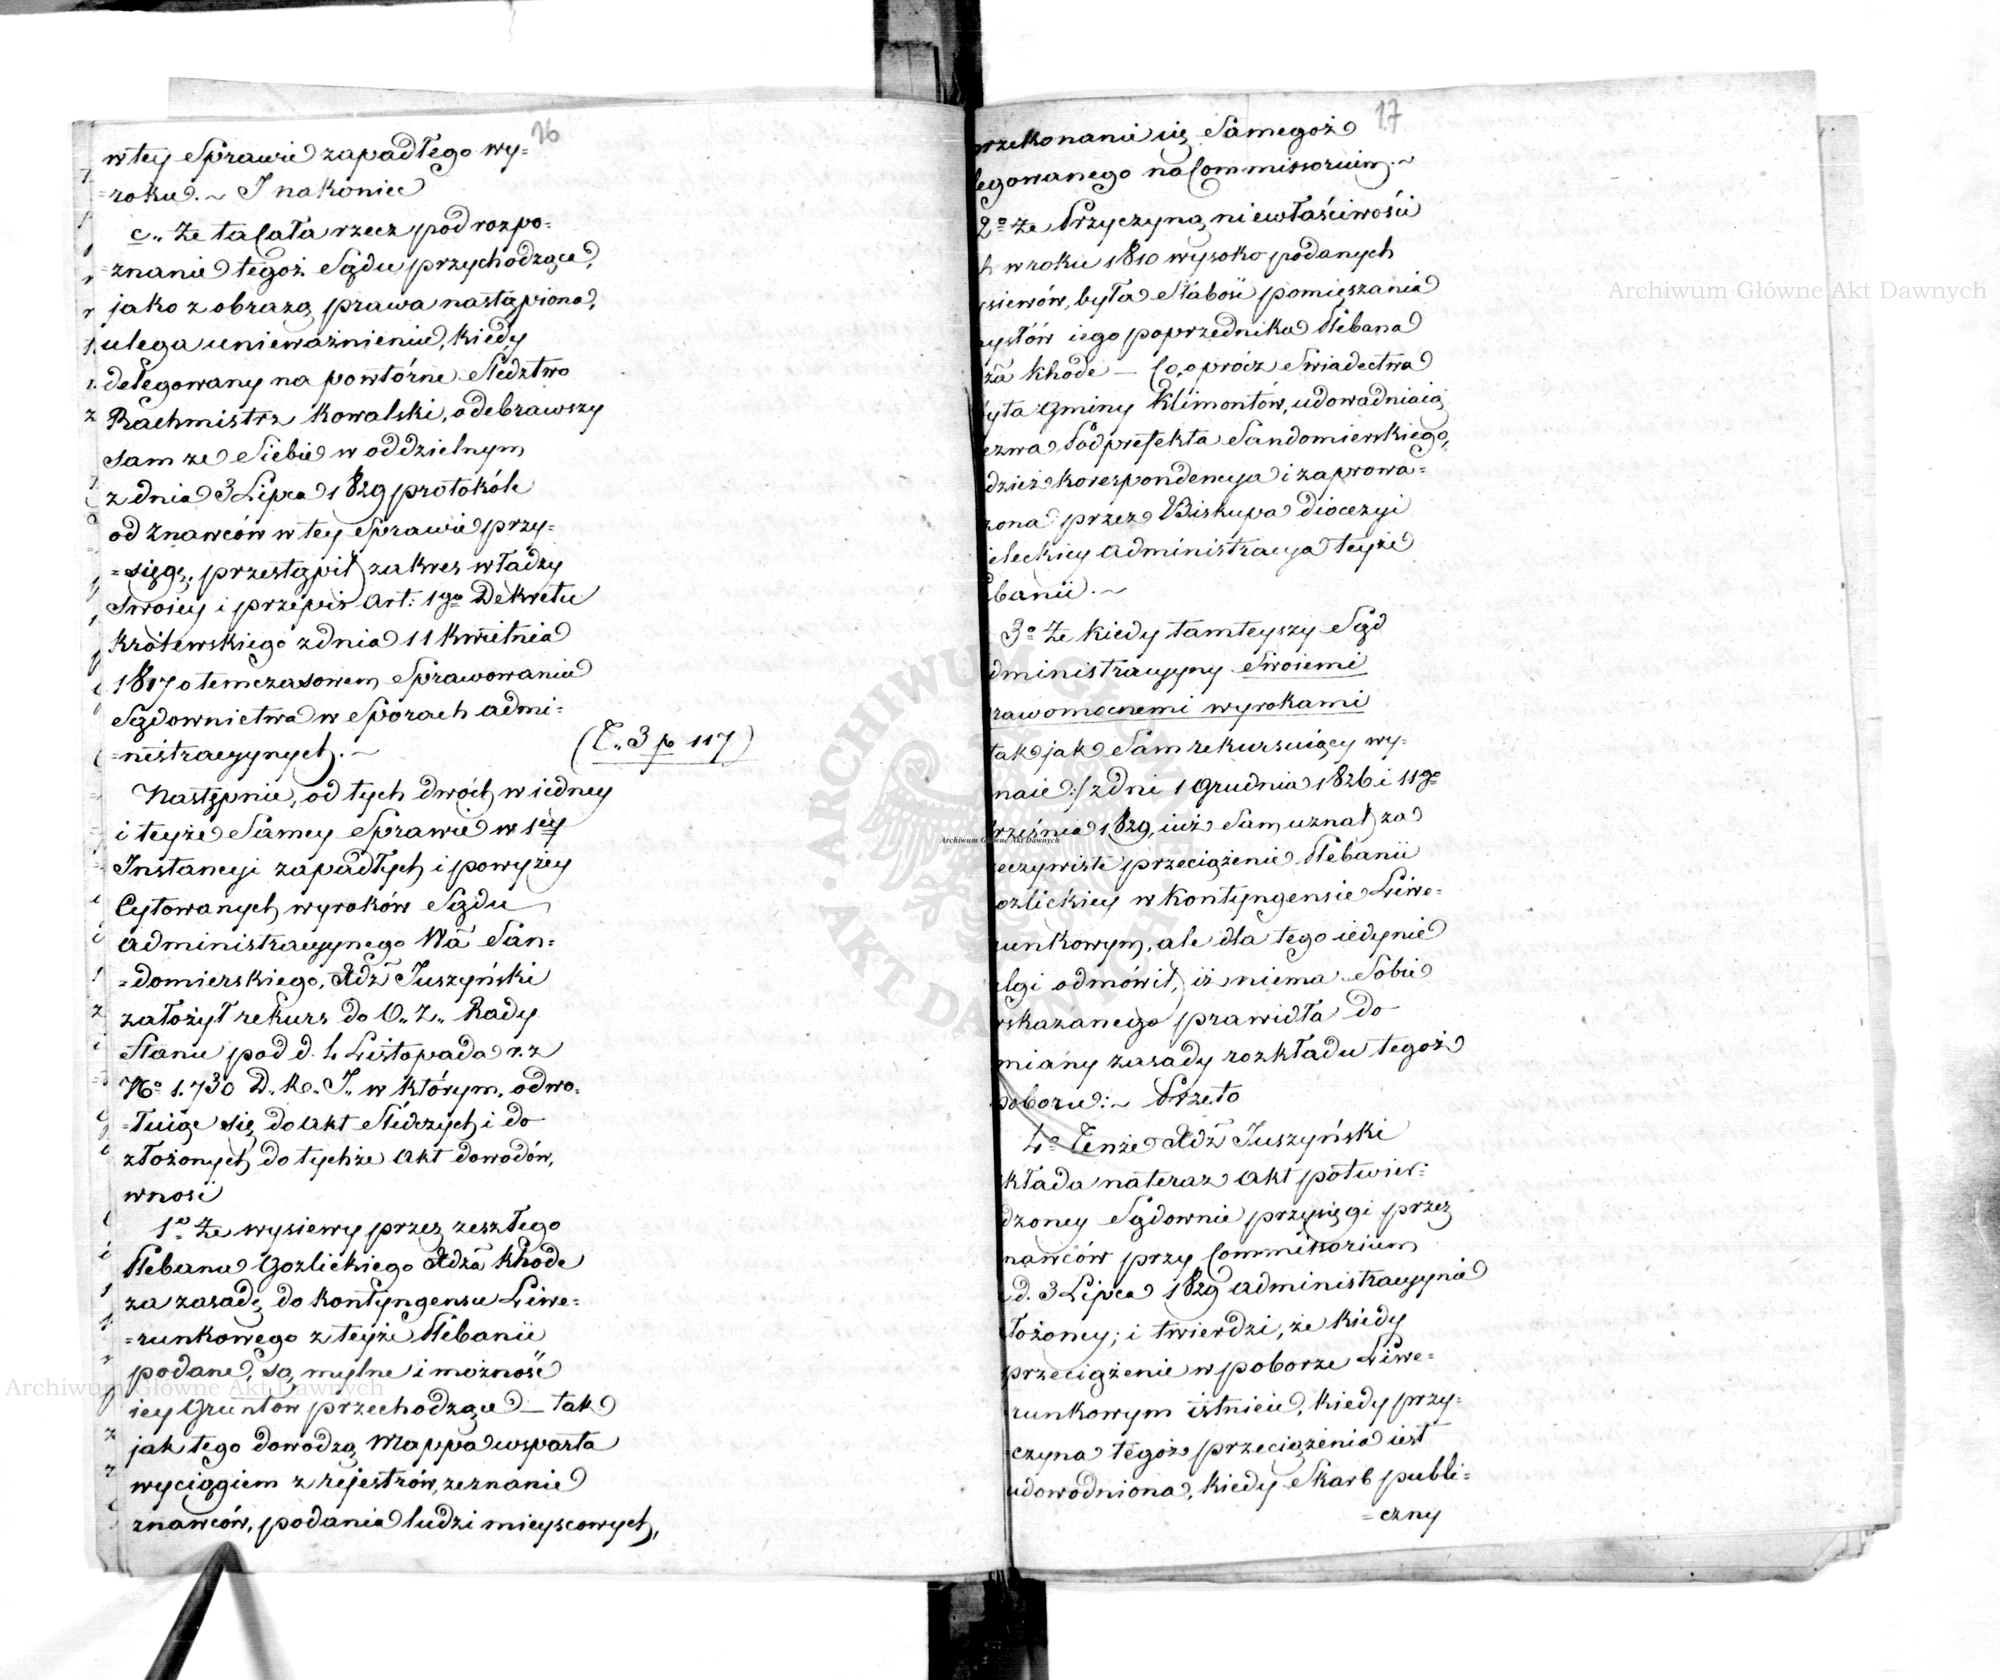 16
w tey Sprawie zapadłego wy=
=roku. ~ I nakoniec
c. Że ta cała rzecz pod rozpo=
=znanie tegoż Sądu przychodzące,
jako z obrazą prawa nastąpiono,
ulega unieważnieniu, kiedy
delegowany na powtórne Śledztwo
Rachmistrz Kowalski, odebrawszy
sam ze Siebie w oddzielnym
z dnia 3 Lipca 1829 protokóle
od Znawców w tey Sprawie przy=
=sięgę, przestąpił zakres władzy
swoiey i przepis Art: 1go Dekretu
Królewskiego z dnia 11 Kwietnia
1817 o temczasowem Sprawowaniu
Sądownictwa w Sporach admi=
=nistracyynych. ~
(T. 3 p 117)
Następnie, od tych dwóch w iedney
i teyże Samey Sprawie w 1ey
Instancyi zapadłych i powyżey
Cytowanych wyroków Sądu
administracyynego Wa San=
=domierskiego, Xdz Juszyński
założył rekurs do O. Z. Rady
Stanu pod d. 4 Listopada r. z
No 1.730 D. K. J. w którym, odwo=
=łuiąc się do akt Śledczych i do
złożonych do tychże akt dowodów,
wnosi
1o Że wysiewy przez zeszłego
Plebana Gozlickiego Xdza Khode
za zasadę do kontyngensu Liwe=
=runkowego z teyże Plebanii
podane, są mylne i możność
iey Gruntów przechodzące – tak
jak tego dowodzą Mappa wsparta
wyciągiem z rejestrów, zeznanie
znawców, podania ludzi mieyscowych,
17
przekonanie się Samegoż
legowanego na Commissorium. ~
2o Że Przyczyną niewłaściwości
h w roku 1810 wysoko podanych
ysiewów, była Słabość pomięszania
ysłów iego poprzednika Plebana
za Khode – Co, oprócz Świadectwa
yta Gminy Klimontów, udowadniaią
ezwa Podprefekta Sandomierskiego,
dzież korespondencya i zaprowa=
zona przez Biskupa Diecezyi
ieleckiey administracya teyże
banii. ~
3o Że kiedy tamteyszy Sąd
dministracyyny Swoiemi
rawomocnemi wyrokami
tak jak Sam rekursuiący wy=
naie:/ z dni 1 Grudnia 1826 i 11go
rześnia 1829, iuż Sam uznał za
zeczywiste przeciążenie Plebanii
ozlickiey w Kontyngensie Liwe=
runkowym, ale dla tego iedynie
lgi odmówił, iż niema Sobie
skazanego prawidła do
miany zasady rozkładu tegoż
poboru: ~ Przeto
4o Tenże Xdz Juszyński
kłada nateraz Akt potwier=
dzoney Sądownie przysięgi przez
nawców przy Commissorium
d. 3 Lipca 1829 administracyynie
łożoney; i twierdzi, że kiedy
przeciążenie w poborze Liwe=
runkowym istnieie, kiedy przy=
czyna tegoż przeciążenia iest
udowodniona, kiedy Skarb publi=
=czny
Archiwum Główne Akt Dawnych
Archiwum Główne Akt Dawnych
Archiwum Główne Akt Dawnych
ARCHIWUM GŁÓWNE AKT DAWNYCH